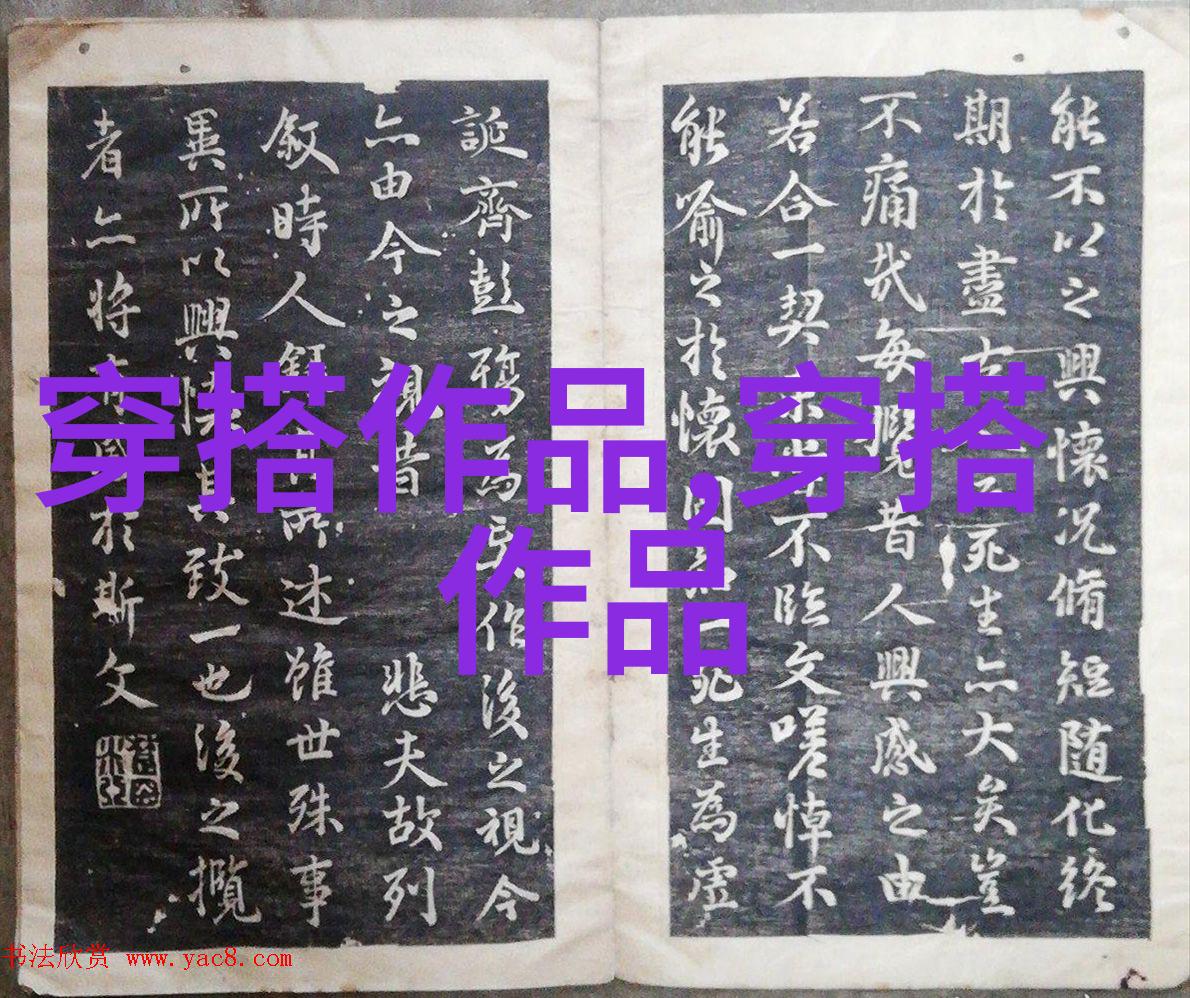 能不以之興懷况脩短随化终
期於盡古人云死生亦大矣豈
不痛哉每覽昔人興感之由
若合一契未嘗不臨文嗟悼不
能喻之於懷固知一死生為虛
誕齊彭殤為妄作後之視今
亦由今之視昔 悲夫故列
叙時人録其所述雖世殊事
異所以興懷其致一也後之攬
者亦将有感於斯文
穿搭作品,穿搭
作品
书法欣赏 www.yac8.com